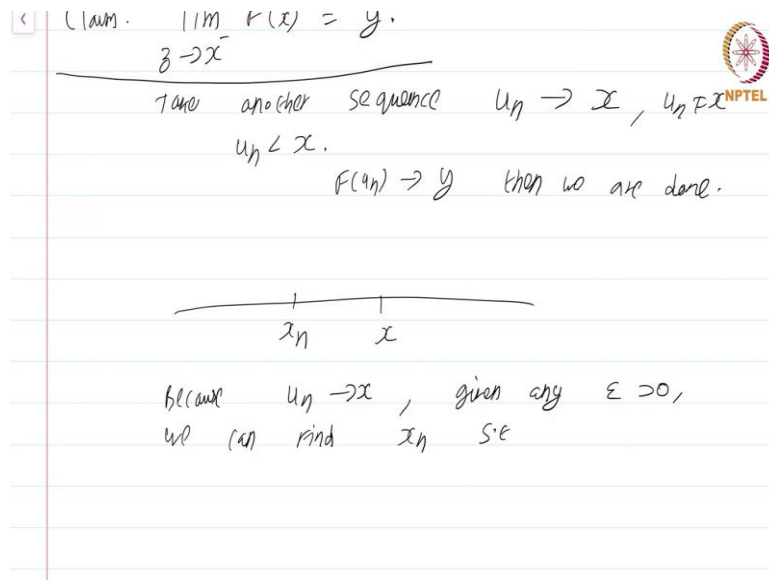 Claim. lim F(x) = y.
z → x⁻
Take another sequence uₙ → x, uₙ ≠ x
NPTEL
uₙ < x.
F(uₙ) → y then we are done.
xₙ x
Because uₙ → x, given any ε > 0,
we can find xₙ s.t